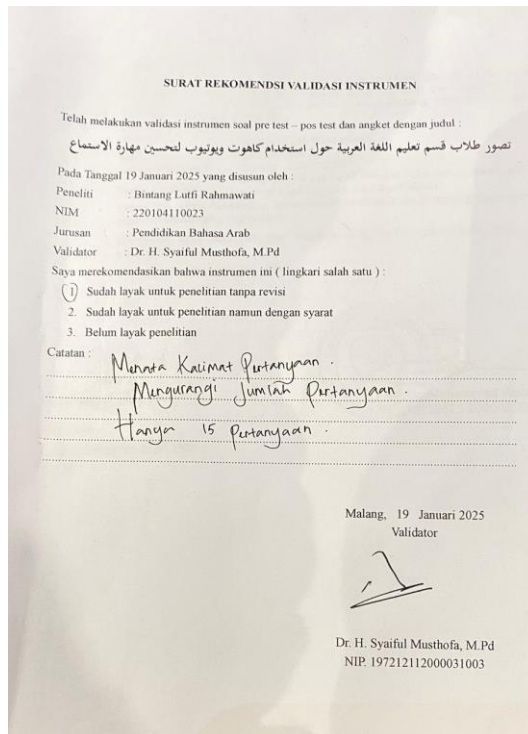 SURAT REKOMENDSI VALIDASI INSTRUMEN
Telah melakukan validasi instrumen soal pre test – pos test dan angket dengan judul :
تصور طلاب قسم تعليم اللغة العربية حول استخدام كاهوت ويوتيوب لتحسين مهارة الاستماع
Pada Tanggal 19 Januari 2025 yang disusun oleh :
Peneliti : Bintang Lutfi Rahmawati
NIM : 220104110023
Jurusan : Pendidikan Bahasa Arab
Validator : Dr. H. Syaiful Musthofa, M.Pd
Saya merekomendasikan bahwa instrumen ini ( lingkari salah satu ) :
1. Sudah layak untuk penelitian tanpa revisi
2. Sudah layak untuk penelitian namun dengan syarat
3. Belum layak penelitian
Catatan : Menata Kalimat Pertanyaan .
Mengurangi Jumlah Pertanyaan .
Hanya 15 Pertanyaan .
Malang, 19 Januari 2025
Validator
Dr. H. Syaiful Musthofa, M.Pd
NIP. 197212112000031003